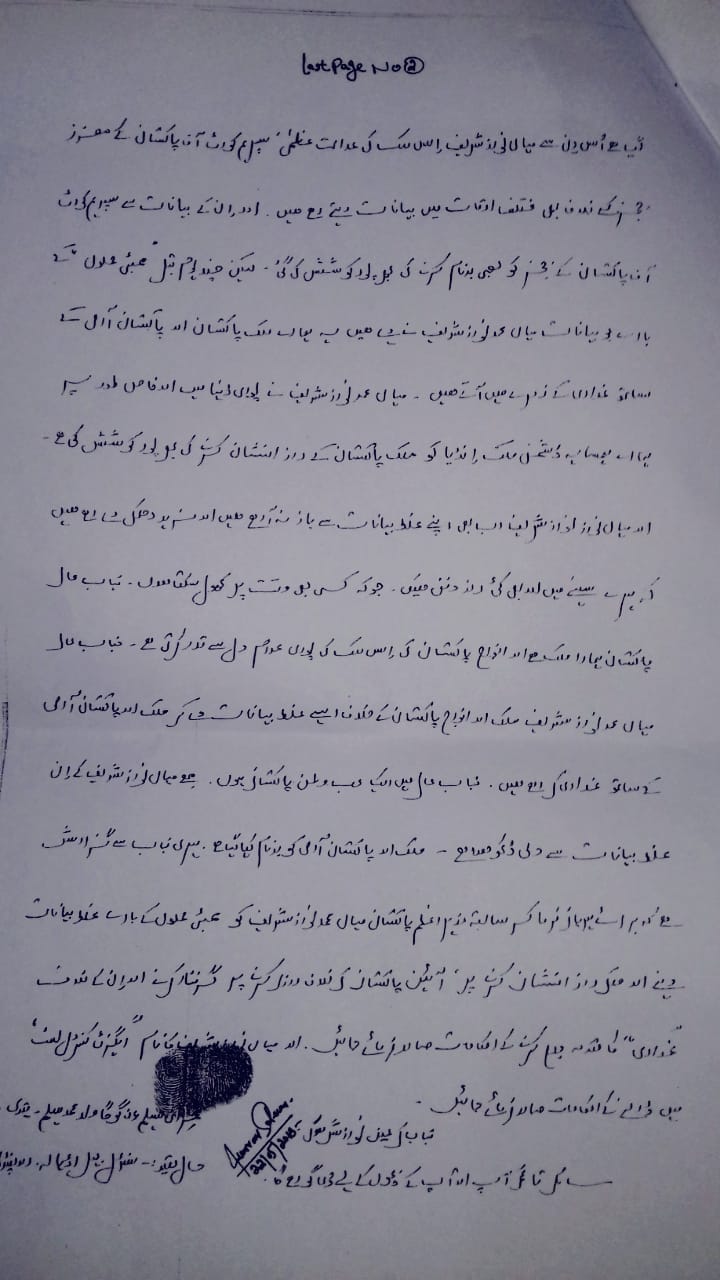 Last Page No ②
گیا ہے اُس دن سے میاں نواز شریف اِس ملک کی عدالت عظمیٰ، سپریم کورٹ آف پاکستان کے معزز
ججز کے خلاف بھی مختلف اوقات میں بیانات دیتے رہے ھیں۔ اور اِن کے بیانات سے سپریم کورٹ
آف پاکستان کے ججز کو بھی بدنام کرنے کی بھرپور کوشش کی گئی۔ لیکن چند یوم قبل "ممبئی حملوں" کے
بارے جو بیانات میاں محمد نواز شریف نے دیے ھیں یہ ہمارے ملک پاکستان اور پاکستان آرمی کے
ساتھ غداری کے زمرے میں آتے ھیں۔ میاں محمد نواز شریف نے پوری دُنیا میں اور خاص طور پر
ہمارے ہمسایہ دُشمن ملک اِنڈیا کو ملک پاکستان کے راز افشاں کرنے کی بھرپور کوشش کی ہے۔
اور میاں نواز شریف اب بھی اپنے غلط بیانات سے باز نہ آرہے ھیں اور مزید دھمکی دے رہے ھیں
کہ میرے سینے میں اور بھی کئی راز دفن ھیں۔ جو کہ کسی بھی وقت پر کھول سکتا ھوں۔ جناب عالی
پاکستان ہمارا ملک ہے اور افواج پاکستان کی اِس ملک کی پوری عوام دل سے قدر کرتی ہے۔ جناب عالی
میاں محمد نواز شریف ملک اور افواج پاکستان کے خلاف ایسے غلط بیانات دے کر ملک اور پاکستان آرمی
کے ساتھ غداری کر رہے ھیں۔ جناب عالی میں ایک محب وطن پاکستانی ہوں۔ مجھے میاں نواز شریف کے اِن
غلط بیانات سے دلی دُکھ ھوا ہے۔ ملک اور پاکستان آرمی کو بدنام کیا گیا ہے۔ میری جناب سے گزارش
ہے کہ برائے مہربانی فرما کر سابقہ وزیر اعظم پاکستان میاں محمد نواز شریف کو ممبئی حملوں کے بارے غلط بیانات
دینے اور ملکی راز افشاں کرنے پر، آئین پاکستان کی خلاف ورزی کرنے پر گرفتار کرنے اور اِن کے خلاف
"غداری" کا مقدمہ درج کرنے کے احکامات صادر فرمائے جائیں۔ اور میاں نواز شریف کا نام "ایگزٹ کنٹرول لسٹ"
میں ڈالنے کے احکامات صادر فرمائے جائیں۔
جناب کی عین نوازش ہوگی۔
سائل تاعمر آپ اور آپ کے لیے دُعا گو رہے گا۔
22/5/2018
سلیم عرف گوگا ولد محمد سلیم۔ قیدی
حال مقید:۔ سنٹرل جیل اڈیالہ، راولپنڈی